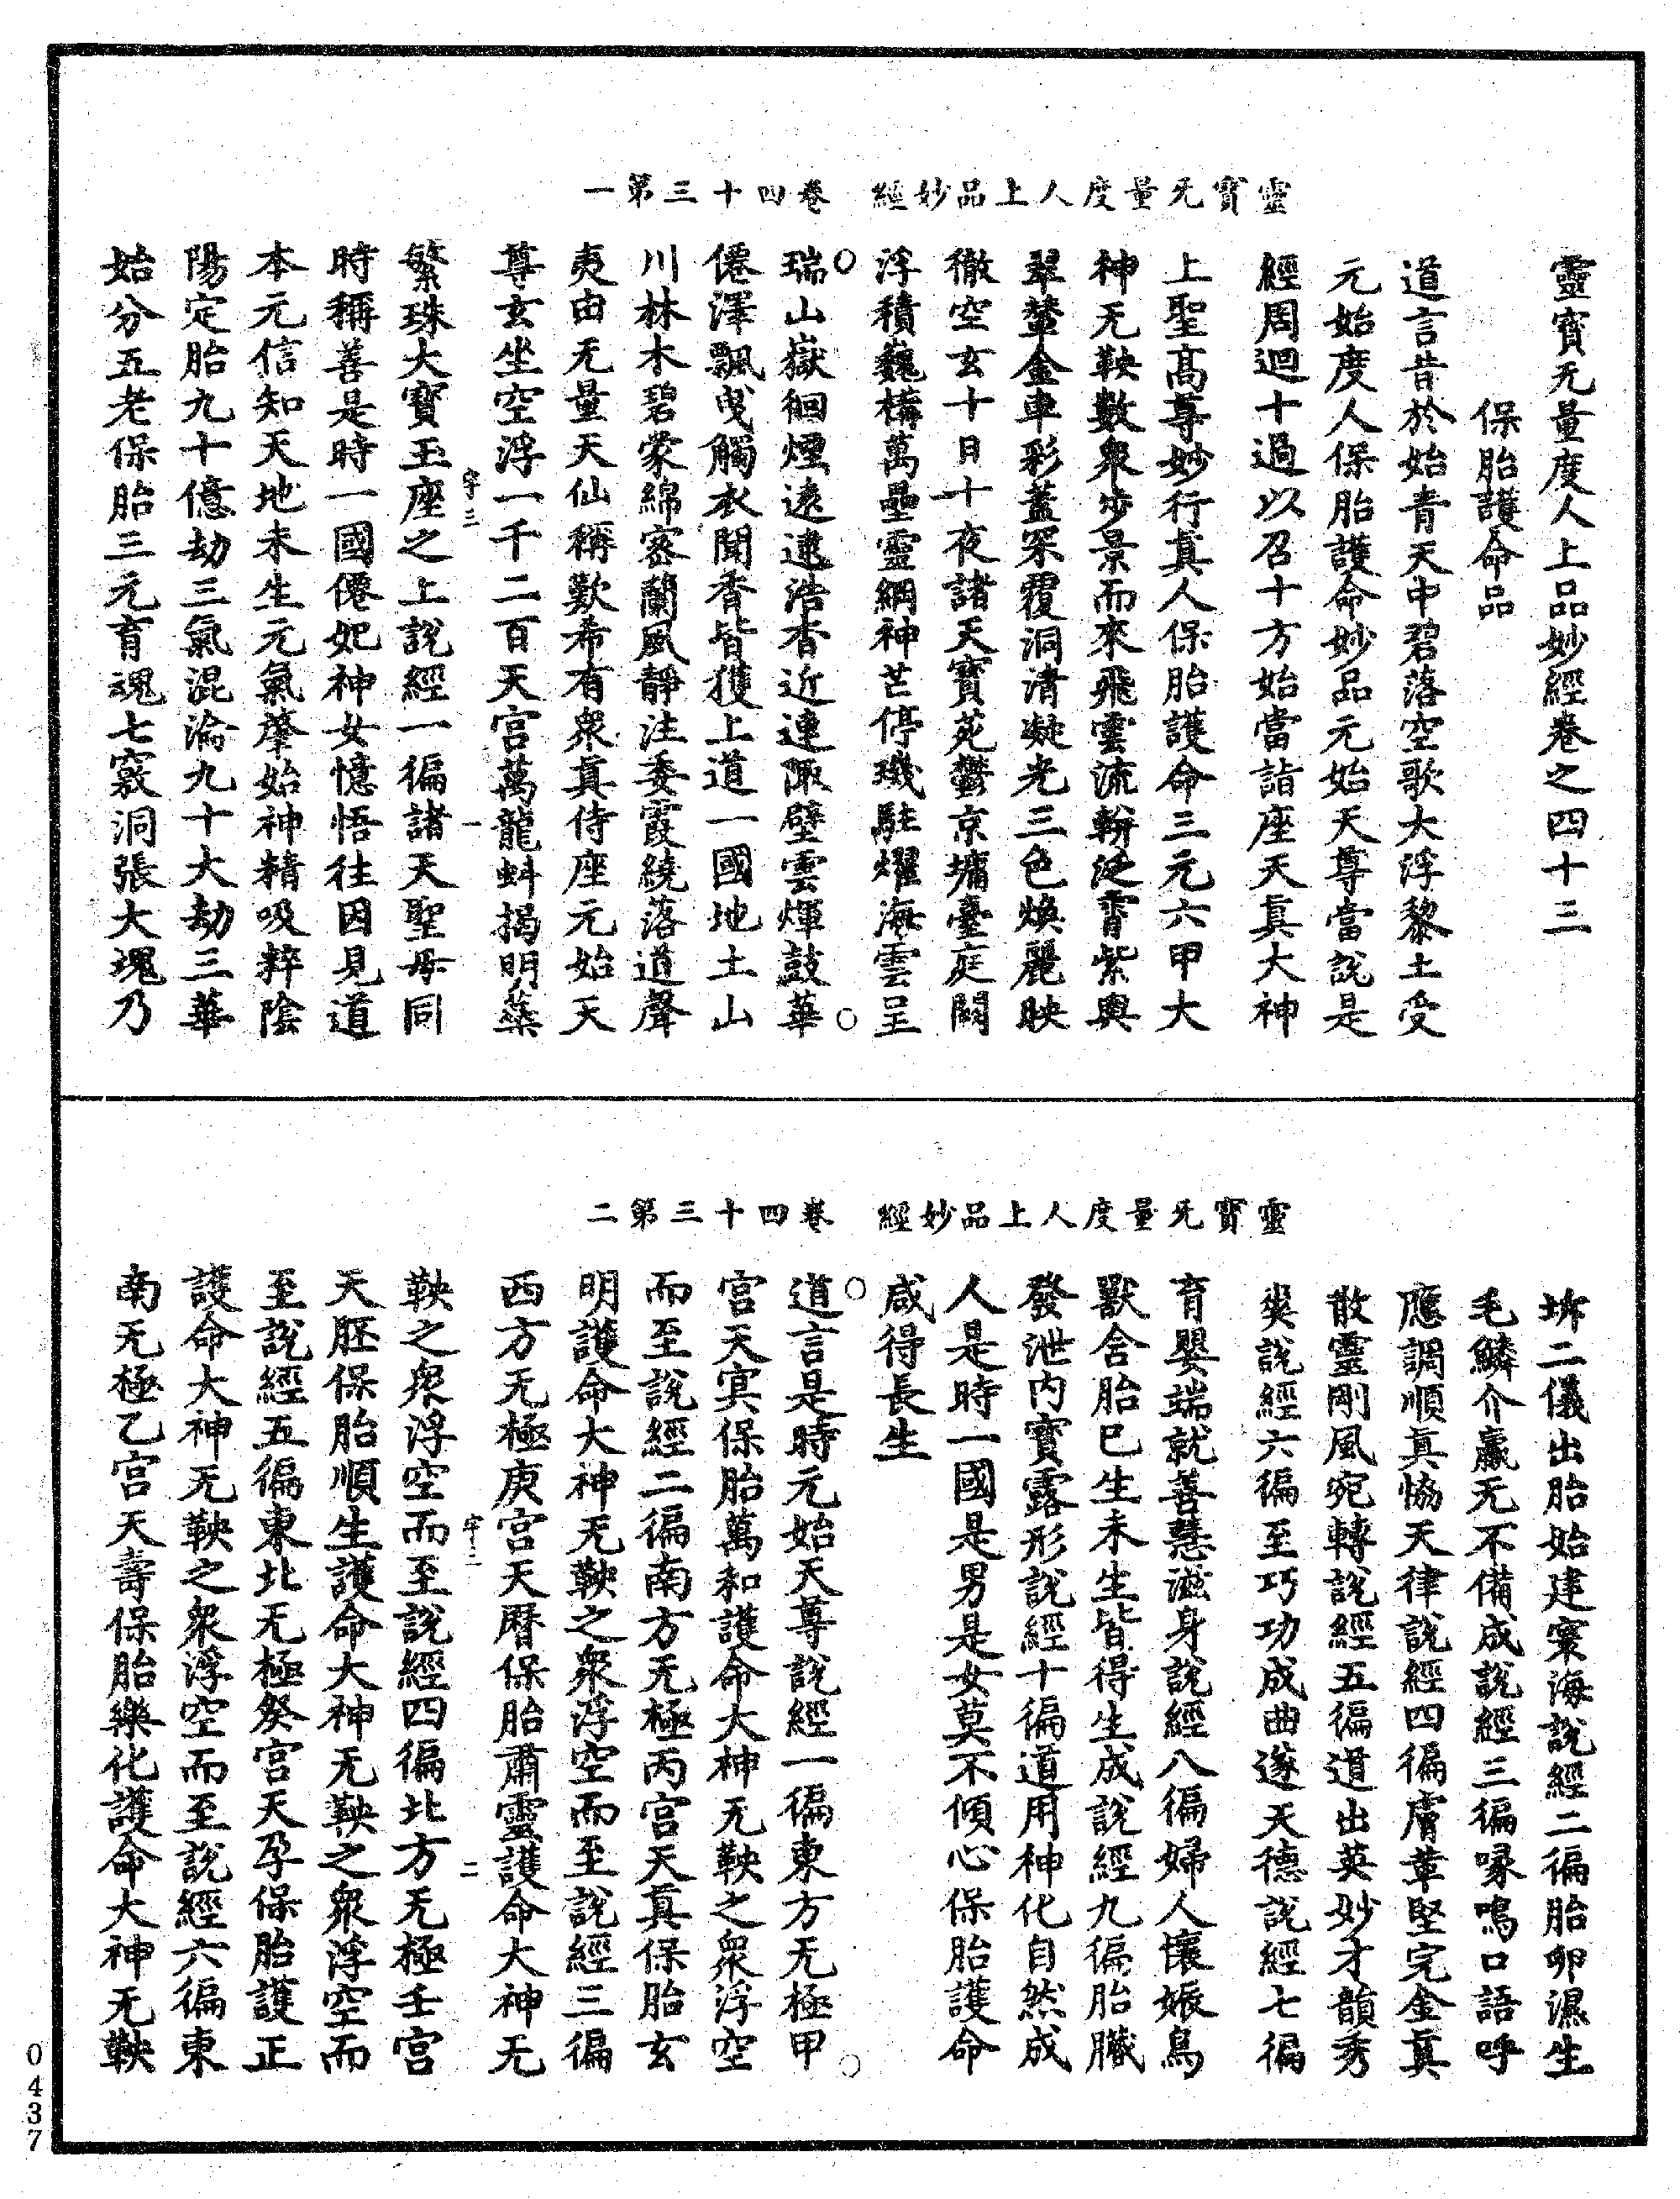 靈寶无量度人上品妙經　卷四十三第一
靈寶无量度人上品妙經卷之四十三
保胎護命品
道言昔於始青天中碧落空歌大浮黎土受
元始度人保胎護命妙品元始天尊當說是
經周迴十過以召十方始當詣座天真大神
上聖高尊妙行真人保胎護命三元六甲大
神无鞅數衆步景而來飛雲流軿泛霄紫輿
翠輦金車彩蓋罙覆洞清凝光三色煥麗映
徹空玄十日十夜諸天寶苑鬱京墉臺庭闕
浮積巍構萬壘靈綱神芒停璣駐燿海雲呈
瑞山嶽徊煙遠逮浩杳近連陬壁雲煇鼓華
僊澤飄曳觸衣聞香皆獲上道一國地土山
川林木碧蒙綿密蘭風靜注委霞繞落道聲
夷由无量天仙稱歎希有衆真侍座元始天
尊玄坐空浮一千二百天宮萬龍蚪揭明蘂
宇三　一
繁珠大寶玉座之上說經一徧諸天聖母同
時稱善是時一國僊妃神女憶悟往因見道
本元信知天地未生元氣肇始神精吸粹陰
陽定胎九十億劫三氣混淪九十大劫三華
始分五老保胎三元育魂七竅洞張大塊乃
靈寶无量度人上品妙經　卷四十三第二
坼二儀出胎始建寰海說經二徧胎卵濕生
毛鱗介蠃无不備成說經三徧喙鳴口語呼
應調順真恊天律說經四徧膚革堅完金真
散靈剛風宛轉說經五徧道出英妙才韻秀
奘說經六徧至巧功成曲遂天德說經七徧
育嬰端就善慧滋身說經八徧婦人懷娠鳥
獸含胎巳生未生皆得生成說經九徧胎臟
發泄内寶露形說經十徧道用神化自然成
人是時一國是男是女莫不傾心保胎護命
咸得長生
道言是時元始天尊說經一徧東方无極甲
宮天寞保胎萬和護命大神无鞅之衆浮空
而至說經二徧南方无極丙宮天真保胎玄
明護命大神无鞅之衆浮空而至說經三徧
西方无極庚宮天曆保胎肅靈護命大神无
宇三　二
鞅之衆浮空而至說經四徧北方无極壬宮
天胚保胎順生護命大神无鞅之衆浮空而
至說經五徧東北无極癸宮天孕保胎護正
護命大神无鞅之衆浮空而至說經六徧東
南无極乙宮天壽保胎樂化護命大神无鞅
0437